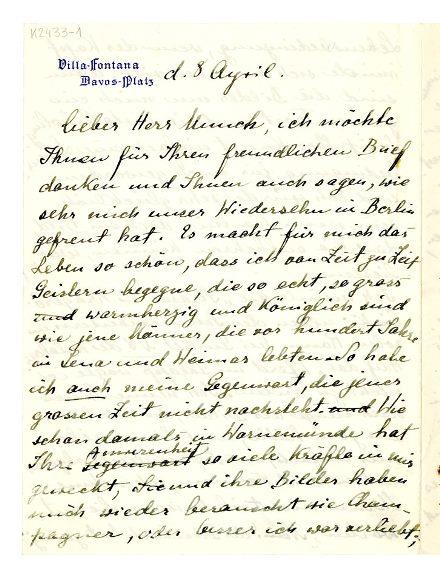 K2433-1
Villa-Fontana
Davos-Platz
d. 8 April.
lieber Herr Munch, ich möchte
Ihnen für Ihren freundlichen Brief
danken und Ihnen auch sagen, wie
sehr mich unser Wiedersehn in Berlin
gefreut hat. Es macht für mich das
Leben so schön, dass ich von Zeit zu Zeit
Geistern begegne, die so echt, so gross
und warmherzig und Königlich sind
wie jene Männer, die vor hundert Jahre
in Jena und Weimar lebten. So habe
ich auch meine Gegenwart, die jener
grossen Zeit nicht nachsteht. und Wie
schon damals in Warnemünde hat
Anwesenheit
Ihre Gegenwart so viele Kräfte in mir
geweckt, Sie und ihre Bilder haben
mich wieder berauscht wie Cham-
pagner, oder besser ich war verliebt,